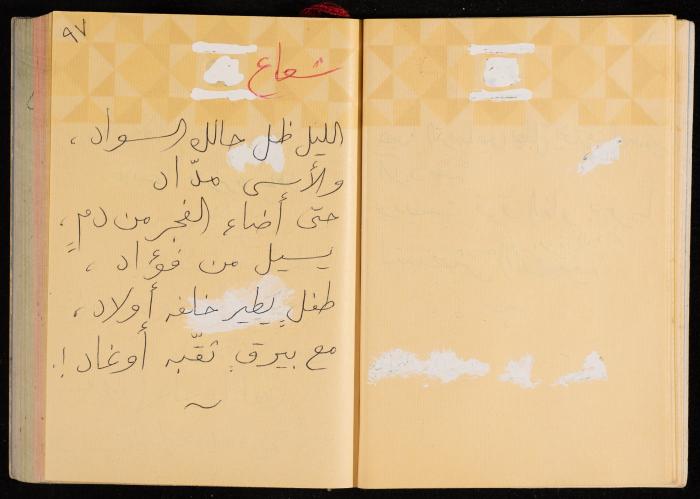 ٩٧
شعاع
الليل ظل حالك السواد،
والأسى مدّاد
حتى أضاء الفجر من دمٍ،
يسيل من فؤاد،
طفلٍ يطير خلفه أولاد،
مع بيرقٍ ثقّبه أوغاد!.